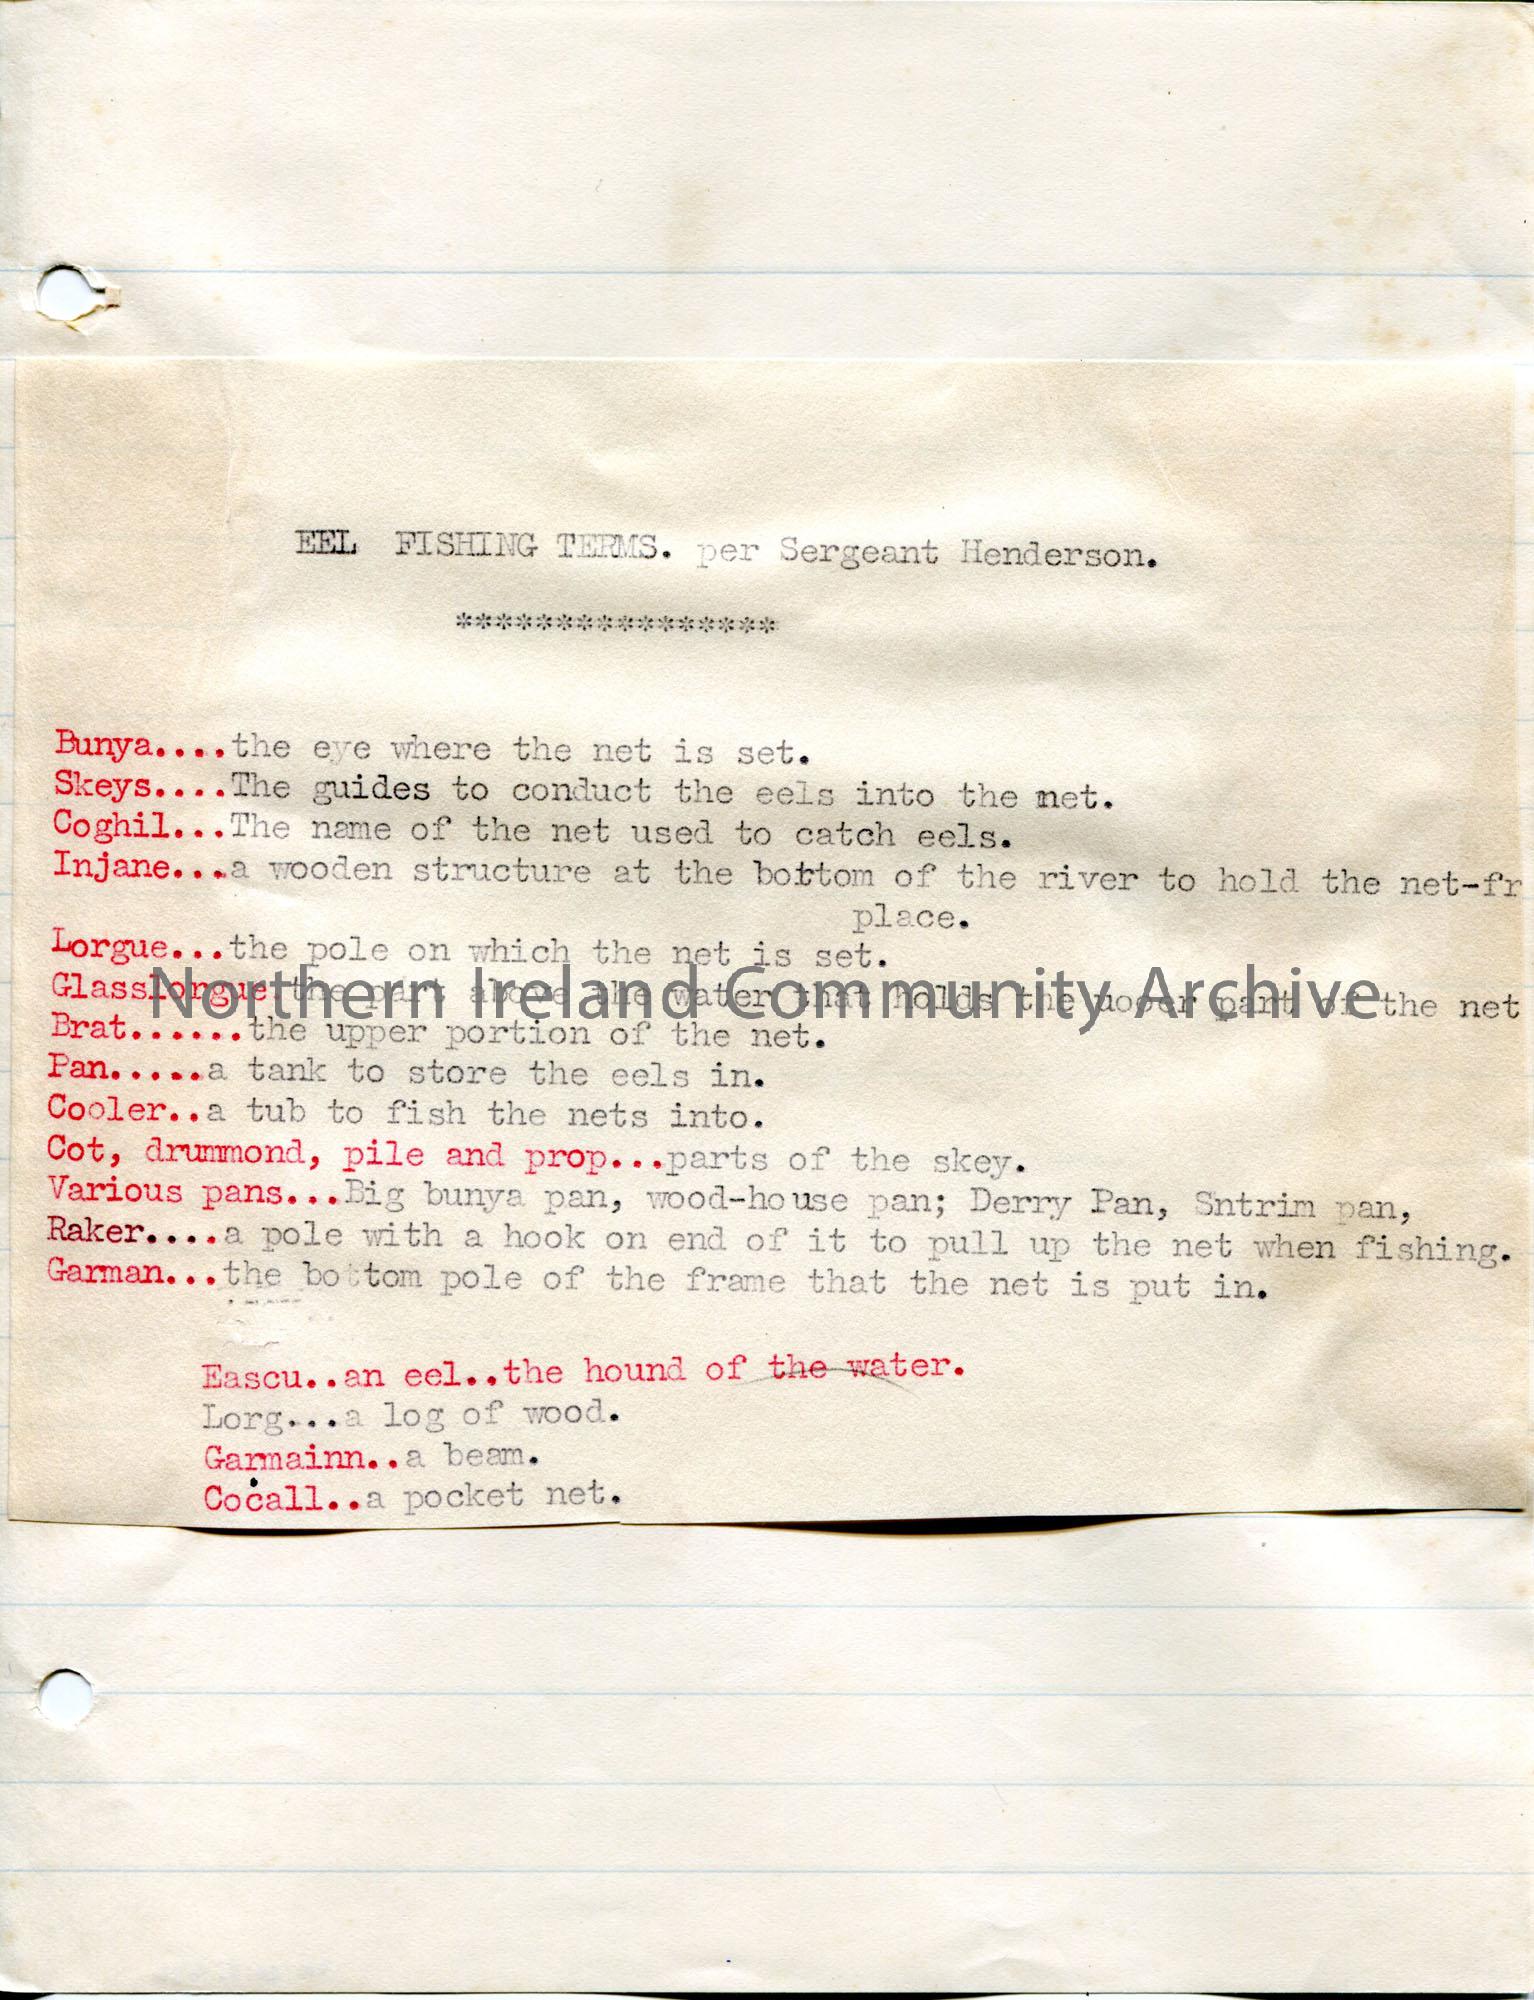 EEL FISHING TERMS. per Sergeant Henderson.
****************
Bunya....the eye where the net is set.
Skeys....The guides to conduct the eels into the net.
Coghil...The name of the net used to catch eels.
Injane...a wooden structure at the bottom of the river to hold the net-fr
place.
Lorgue...the pole on which the net is set.
Glasslorgue.the part above the water that holds the uooer part of the net
Northern Ireland Community Archive
Brat......the upper portion of the net.
Pan.....a tank to store the eels in.
Cooler..a tub to fish the nets into.
Cot, drummond, pile and prop...parts of the skey.
Various pans...Big bunya pan, wood-house pan; Derry Pan, Sntrim pan,
Raker....a pole with a hook on end of it to pull up the net when fishing.
Garman...the bottom pole of the frame that the net is put in.
Eascu..an eel..the hound of the water.
Lorg...a log of wood.
Garmainn..a beam.
Coċall..a pocket net.